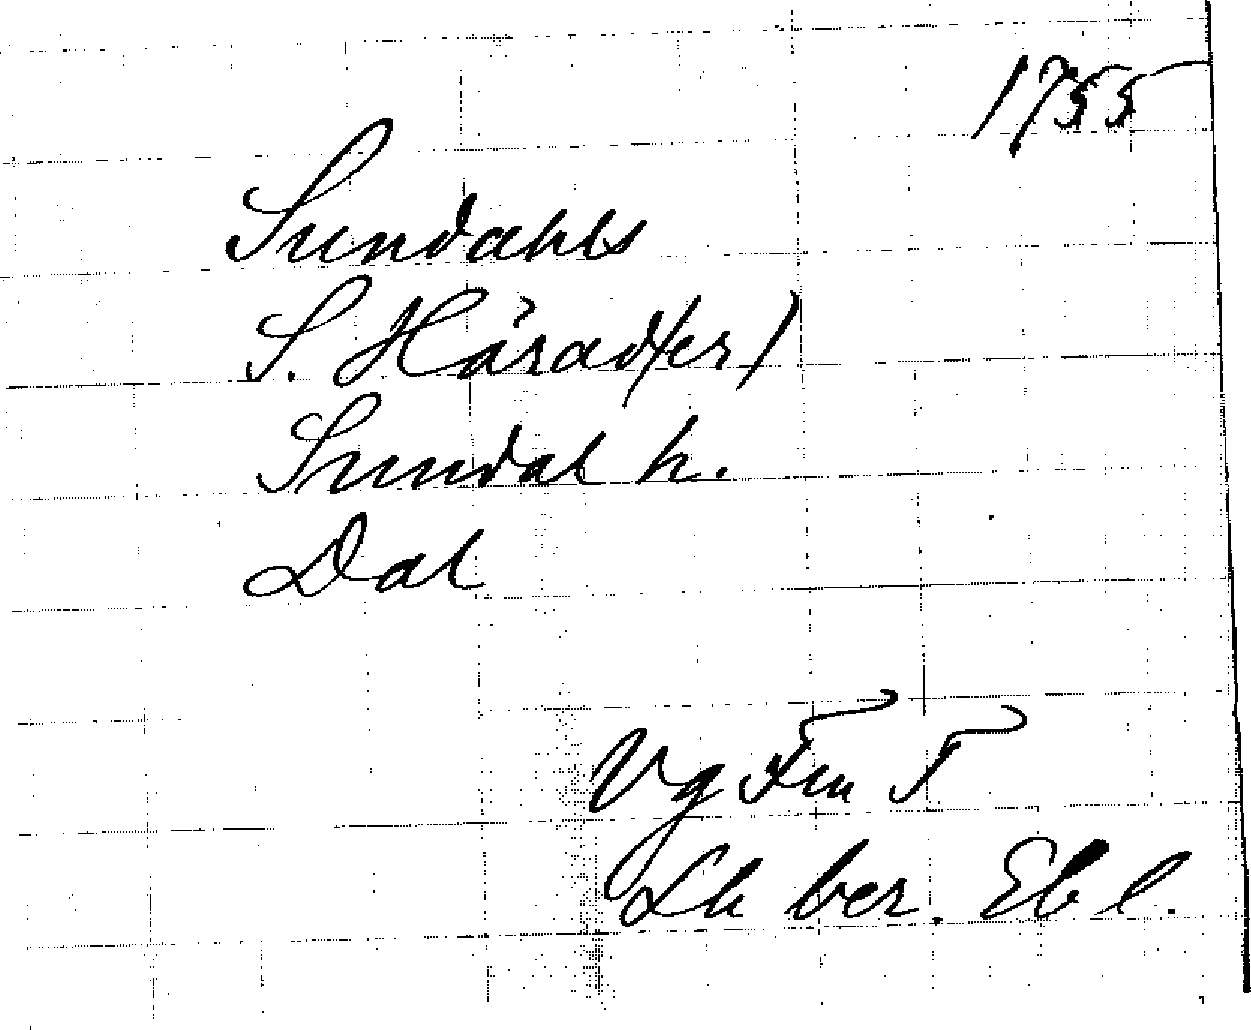 1755
Sundahls
S. Härad/er/
Sundal h.
Dal
Vg Fm T
Lh ber. Ebl.